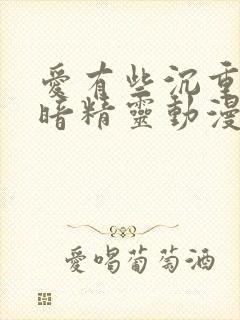 愛有些沉重
暗精靈動漫
愛喝葡萄酒